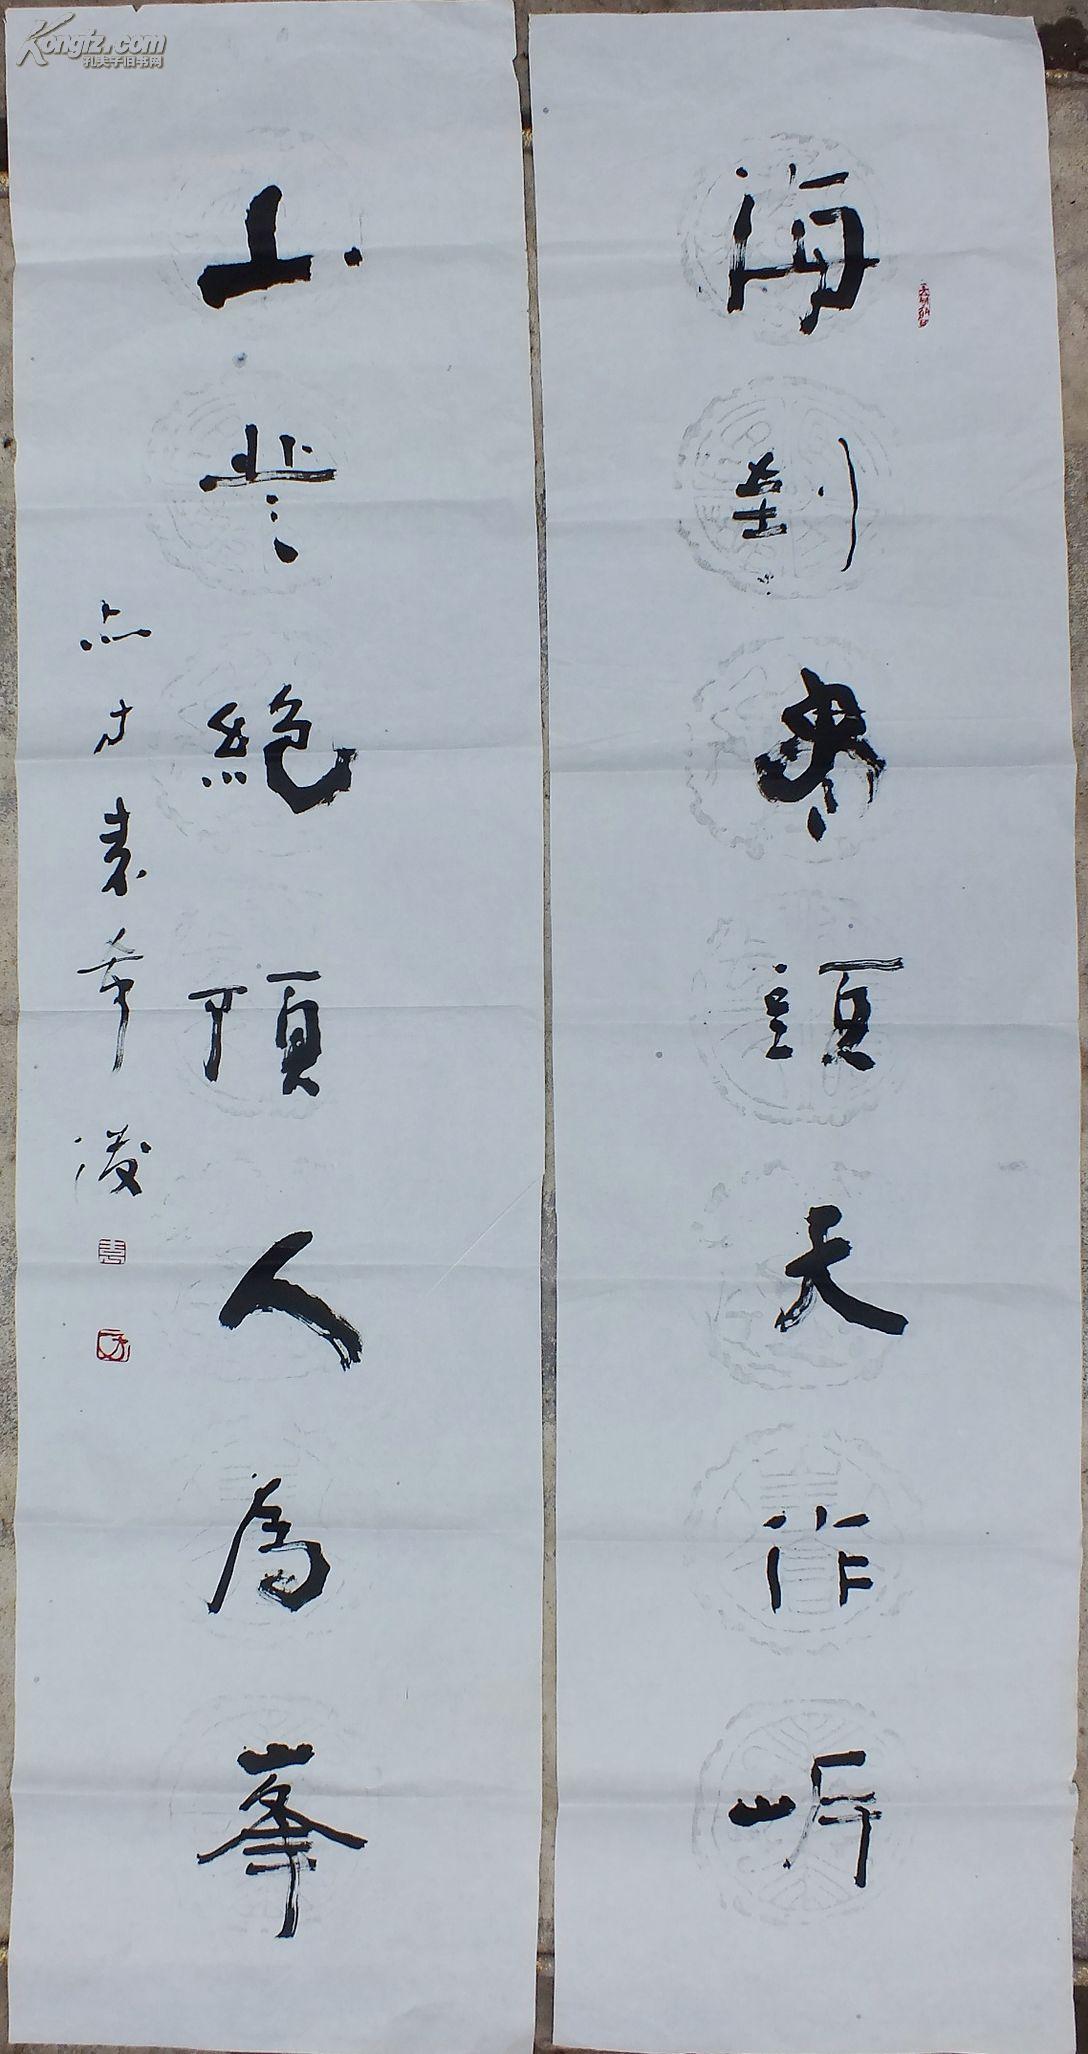 海到盡頭天作岸
山登絕頂人為峯
袁希
Kongfz.com
孔夫子旧书网